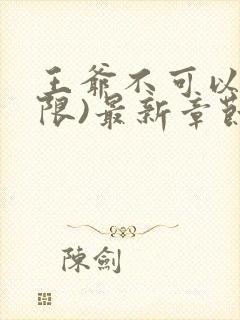 王爷不可以
限)最新章節
陳劍